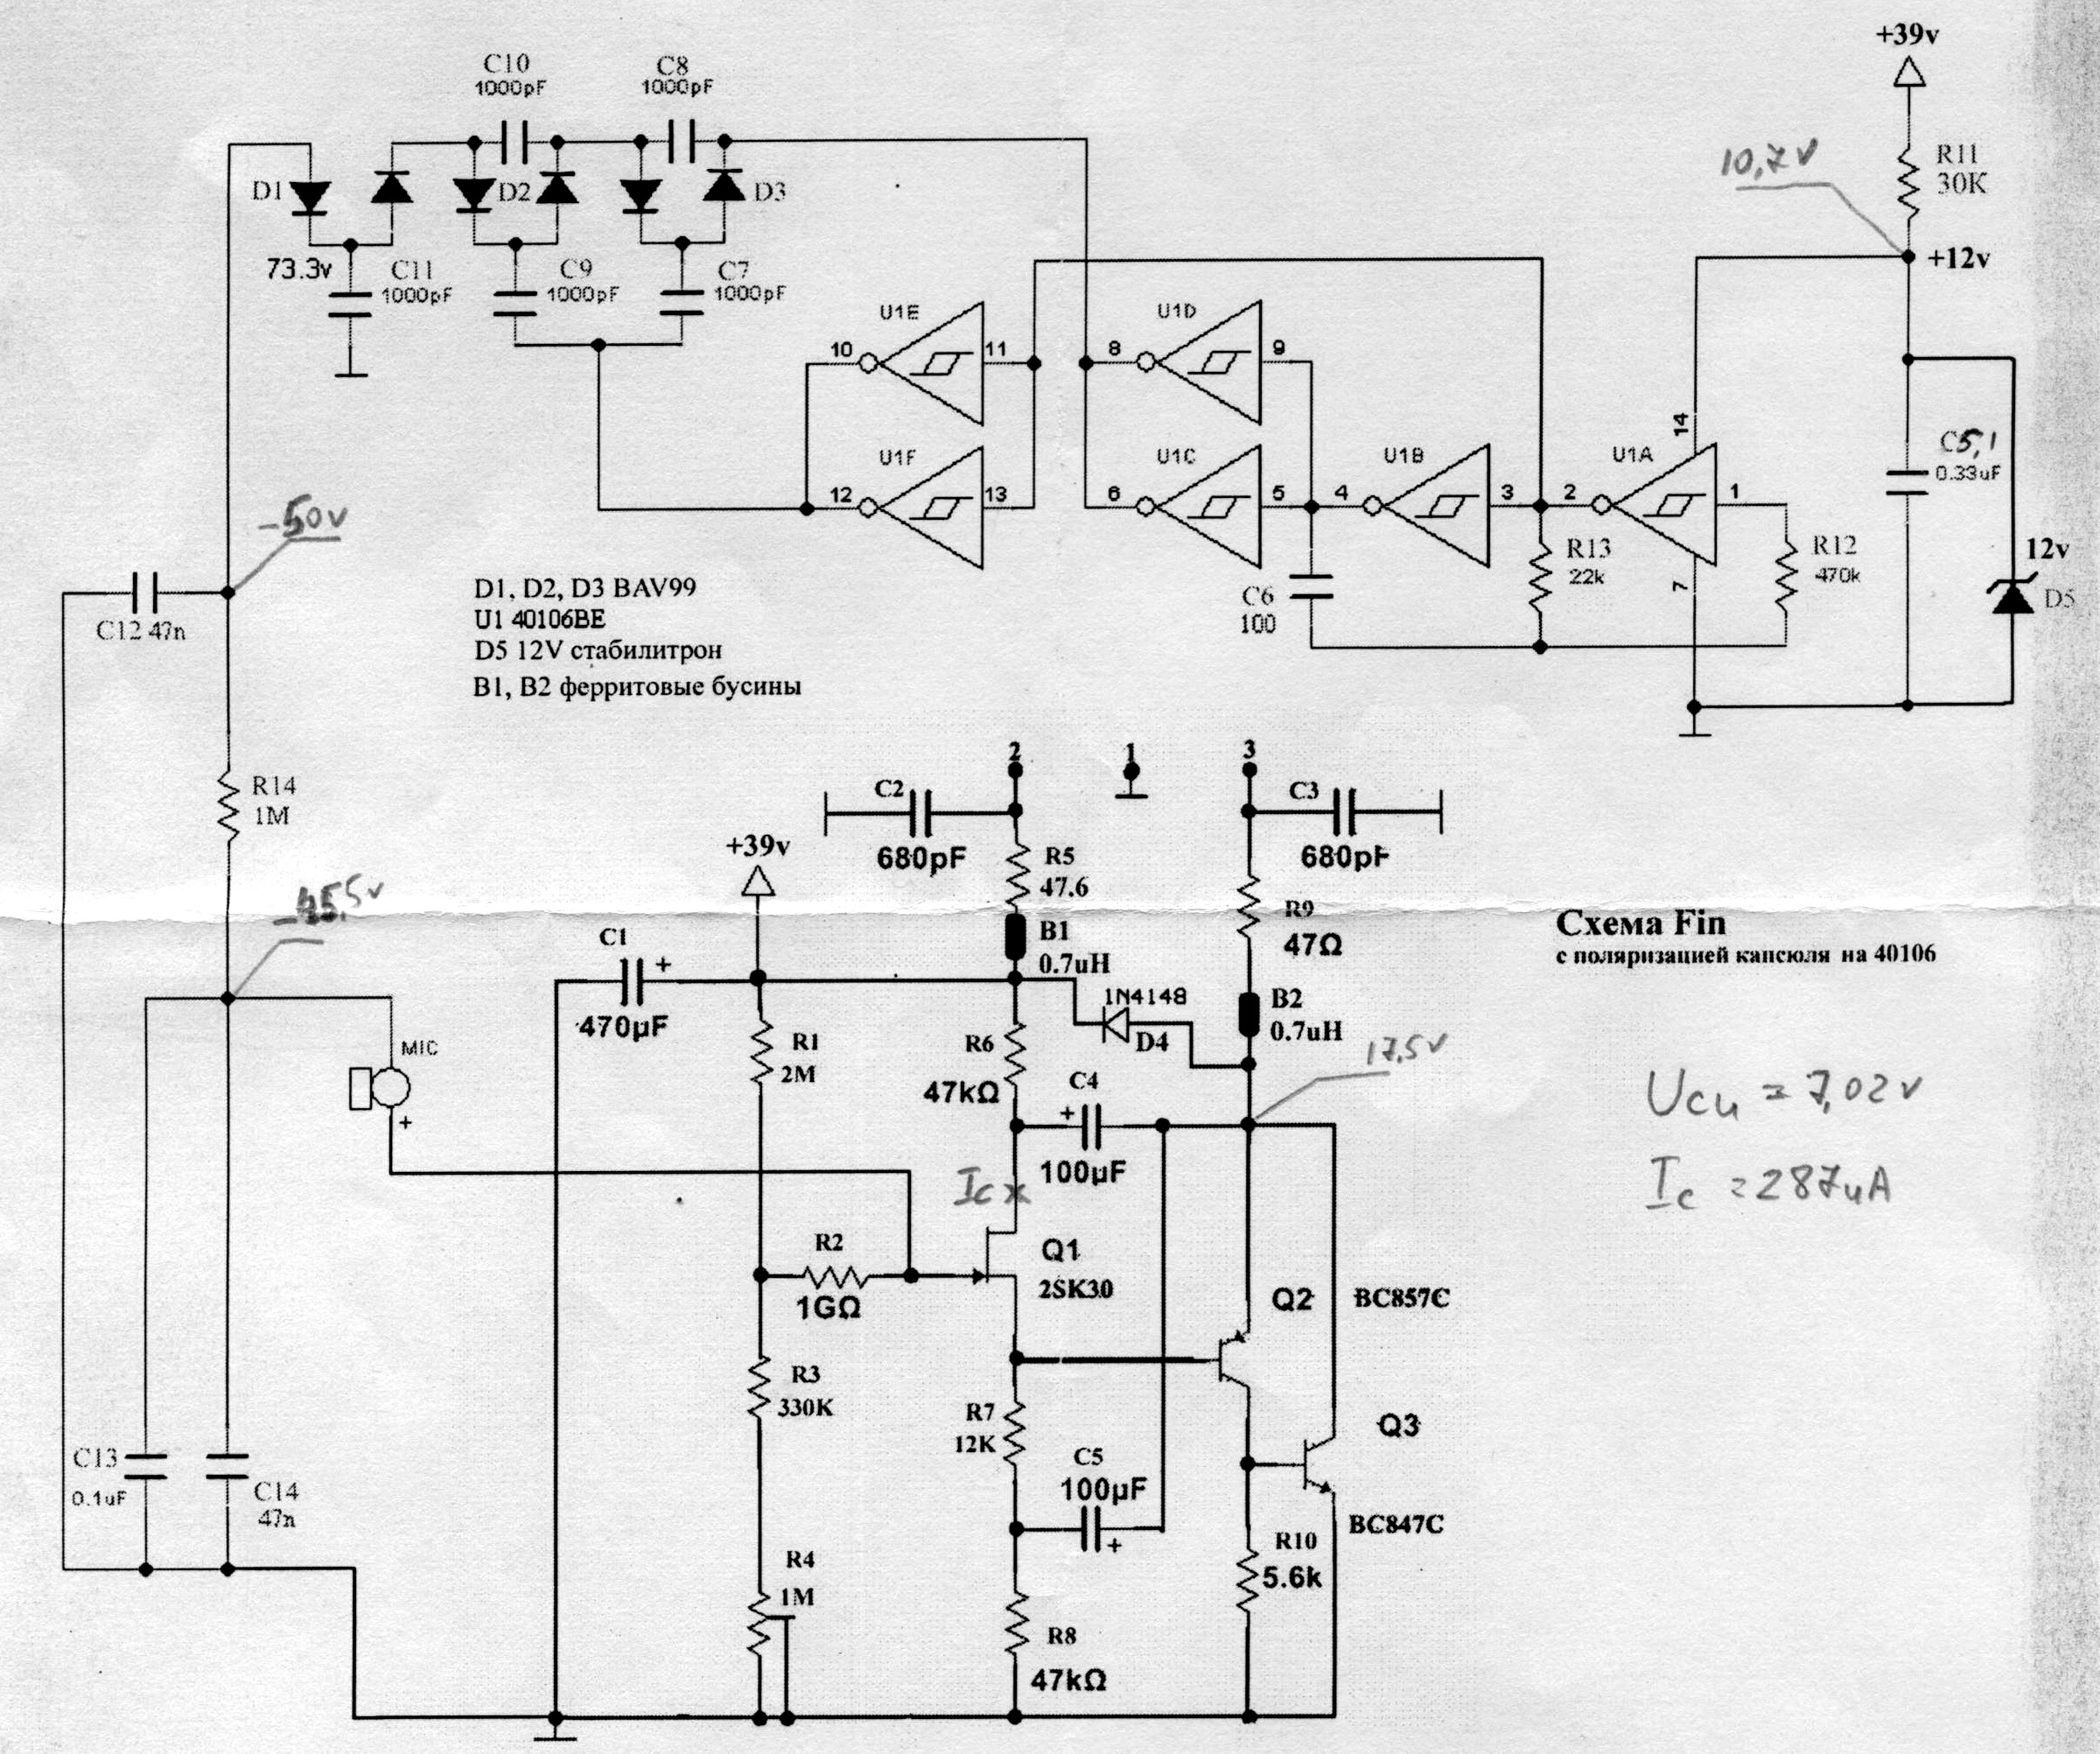 +39v
C10
1000pF
C8
1000pF
10,7v
R11
30K
D1
D2
D3
+12v
73.3v
C11
1000pF
C9
1000pF
C7
1000pF
U1E
10
11
U1D
8
9
14
C5,1
0.33uF
U1F
12
13
U1C
6
5
U1B
4
3
U1A
2
1
-50v
R13
22k
R12
470k
7
12v
D5
C12 47n
D1, D2, D3 BAV99
U1 40106BE
D5 12V стабилитрон
B1, B2 ферритовые бусины
C6
100
2
1
3
R14
1M
C2
680pF
C3
680pF
+39v
R5
47.6
R9
47Ω
-45,5v
Схема Fin
с поляризацией капсюля на 40106
C1
+
470µF
B1
0.7uH
1N4148
D4
B2
0.7uH
17,5v
MIC
+
R1
2M
R6
47kΩ
C4
+
100µF
Uси = 7,02v
Ic x
Ic = 287uA
R2
1GΩ
Q1
2SK30
Q2
BC857C
R3
330K
R7
12K
C5
100µF
+
Q3
BC847C
C13
0.1uF
C14
47n
R4
1M
R10
5.6k
R8
47kΩ